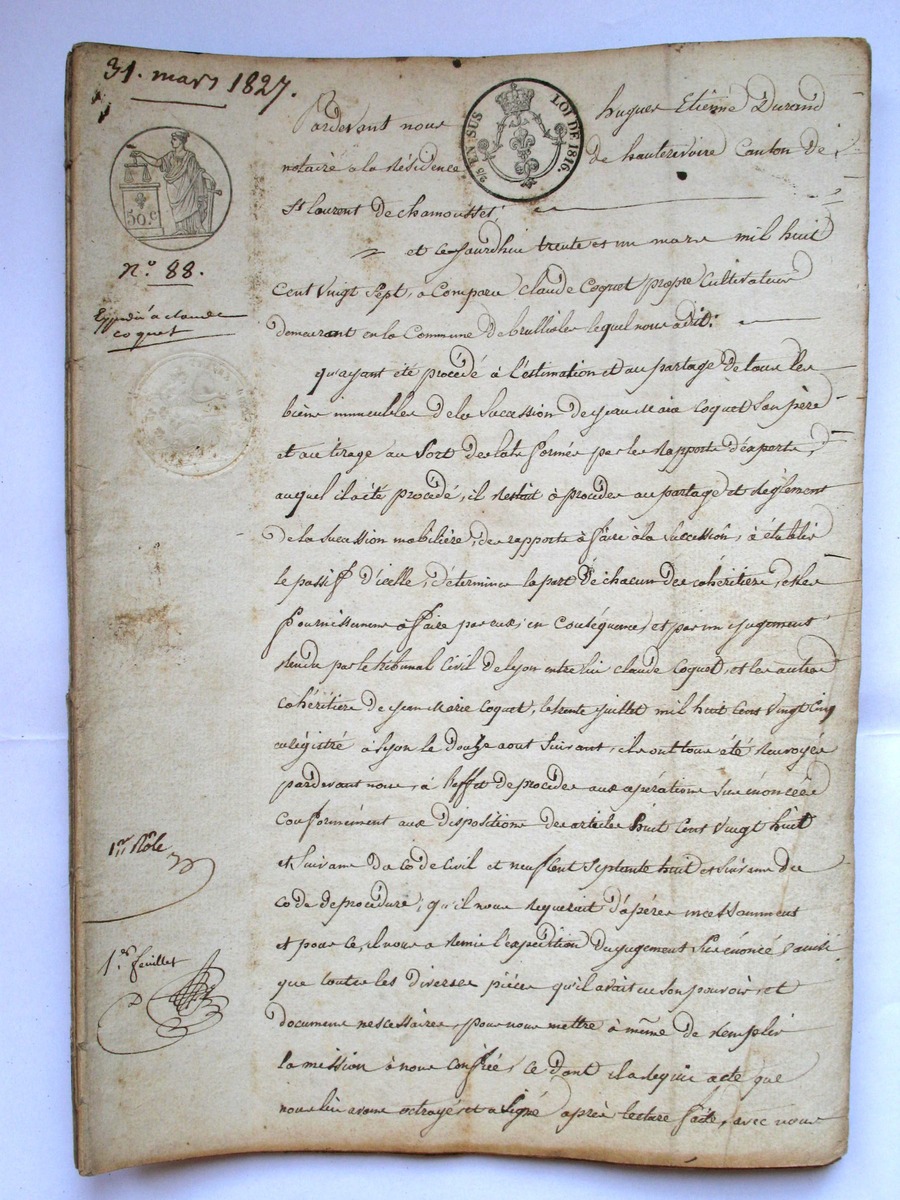 31. mars 1827.
50.c
n.o 88.
Expédié à claude
coquet
EN SUS LOI DE 1816.
Pardevant nous hugues Etienne Durand
notaire a la Résidence de hauterivoire Canton de
St laurent De chamousset;
et cejourdhui trente et un mars mil huit
Cent Vingt Sept, a Comparu claude Coquet propre Cultivateur
demeurant en la Commune de brullioles lequel nous a dit:
qu'ayant été procédé à l'estimation et au partage De tous les
biens immeubles de la Succession de jean Marie Coquet Son père
et au tirage au Sort des lots formés par les Rapports d'experts,
auquel il a été procédé, il Restait à procéder au partage et Règlement
de la Succession mobilière, des rapports à faire à la Succession, à établir
le passif d'icelle, déterminer la part de chacun des cohéritiers, et les
fournissemens à faire par eux; en Conséquence, et par un jugement
Rendu par le tribunal Civil de lyon entre lui claude Coquet, et les autres
cohéritiers de jean Marie Coquet, le trente juillet mil huit Cent Vingt Cinq
enregistré à lyon le Douze aout Suivant, ils ont tous été Renvoyés
pardevant nous, à l'effet de procéder aux opérations Sus énoncées
Conformément aux dispositions des articles huit Cent Vingt huit
et Suivans Du Code Civil et neuf Cent Septante huit et Suivans du
Code de procédure; qu'il nous Requerait d'opérer incessamment
et pour ce, il nous a Remis l'expédition du jugement Sus énoncé ainsi
que toutes les diverses pièces qu'il avait en son pouvoir, et
documens nescessaires, pour nous mettre à même de Remplir
la mission à nous Confiée, ce dont il a Requis acte que
nous lui avons octroyé, et a Signé après lecture faite, avec nous
1er Rôle
1er feuillet